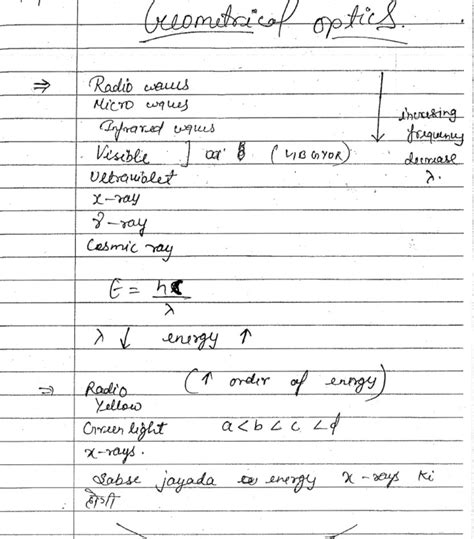 Geometrical optics.
⇒ Radio waves
Micro waves
Infrared waves
Visible ] (VIBGYOR)
Ultraviolet
x-ray
γ-ray
Cosmic ray
increasing
frequency
decrease
λ.
E = hc
λ
λ ↓ energy ↑
⇒ Radio (↑ order of energy)
Yellow
Green light a<b<c<d
x-rays.
Sabse jayada energy x-rays ki
होगी